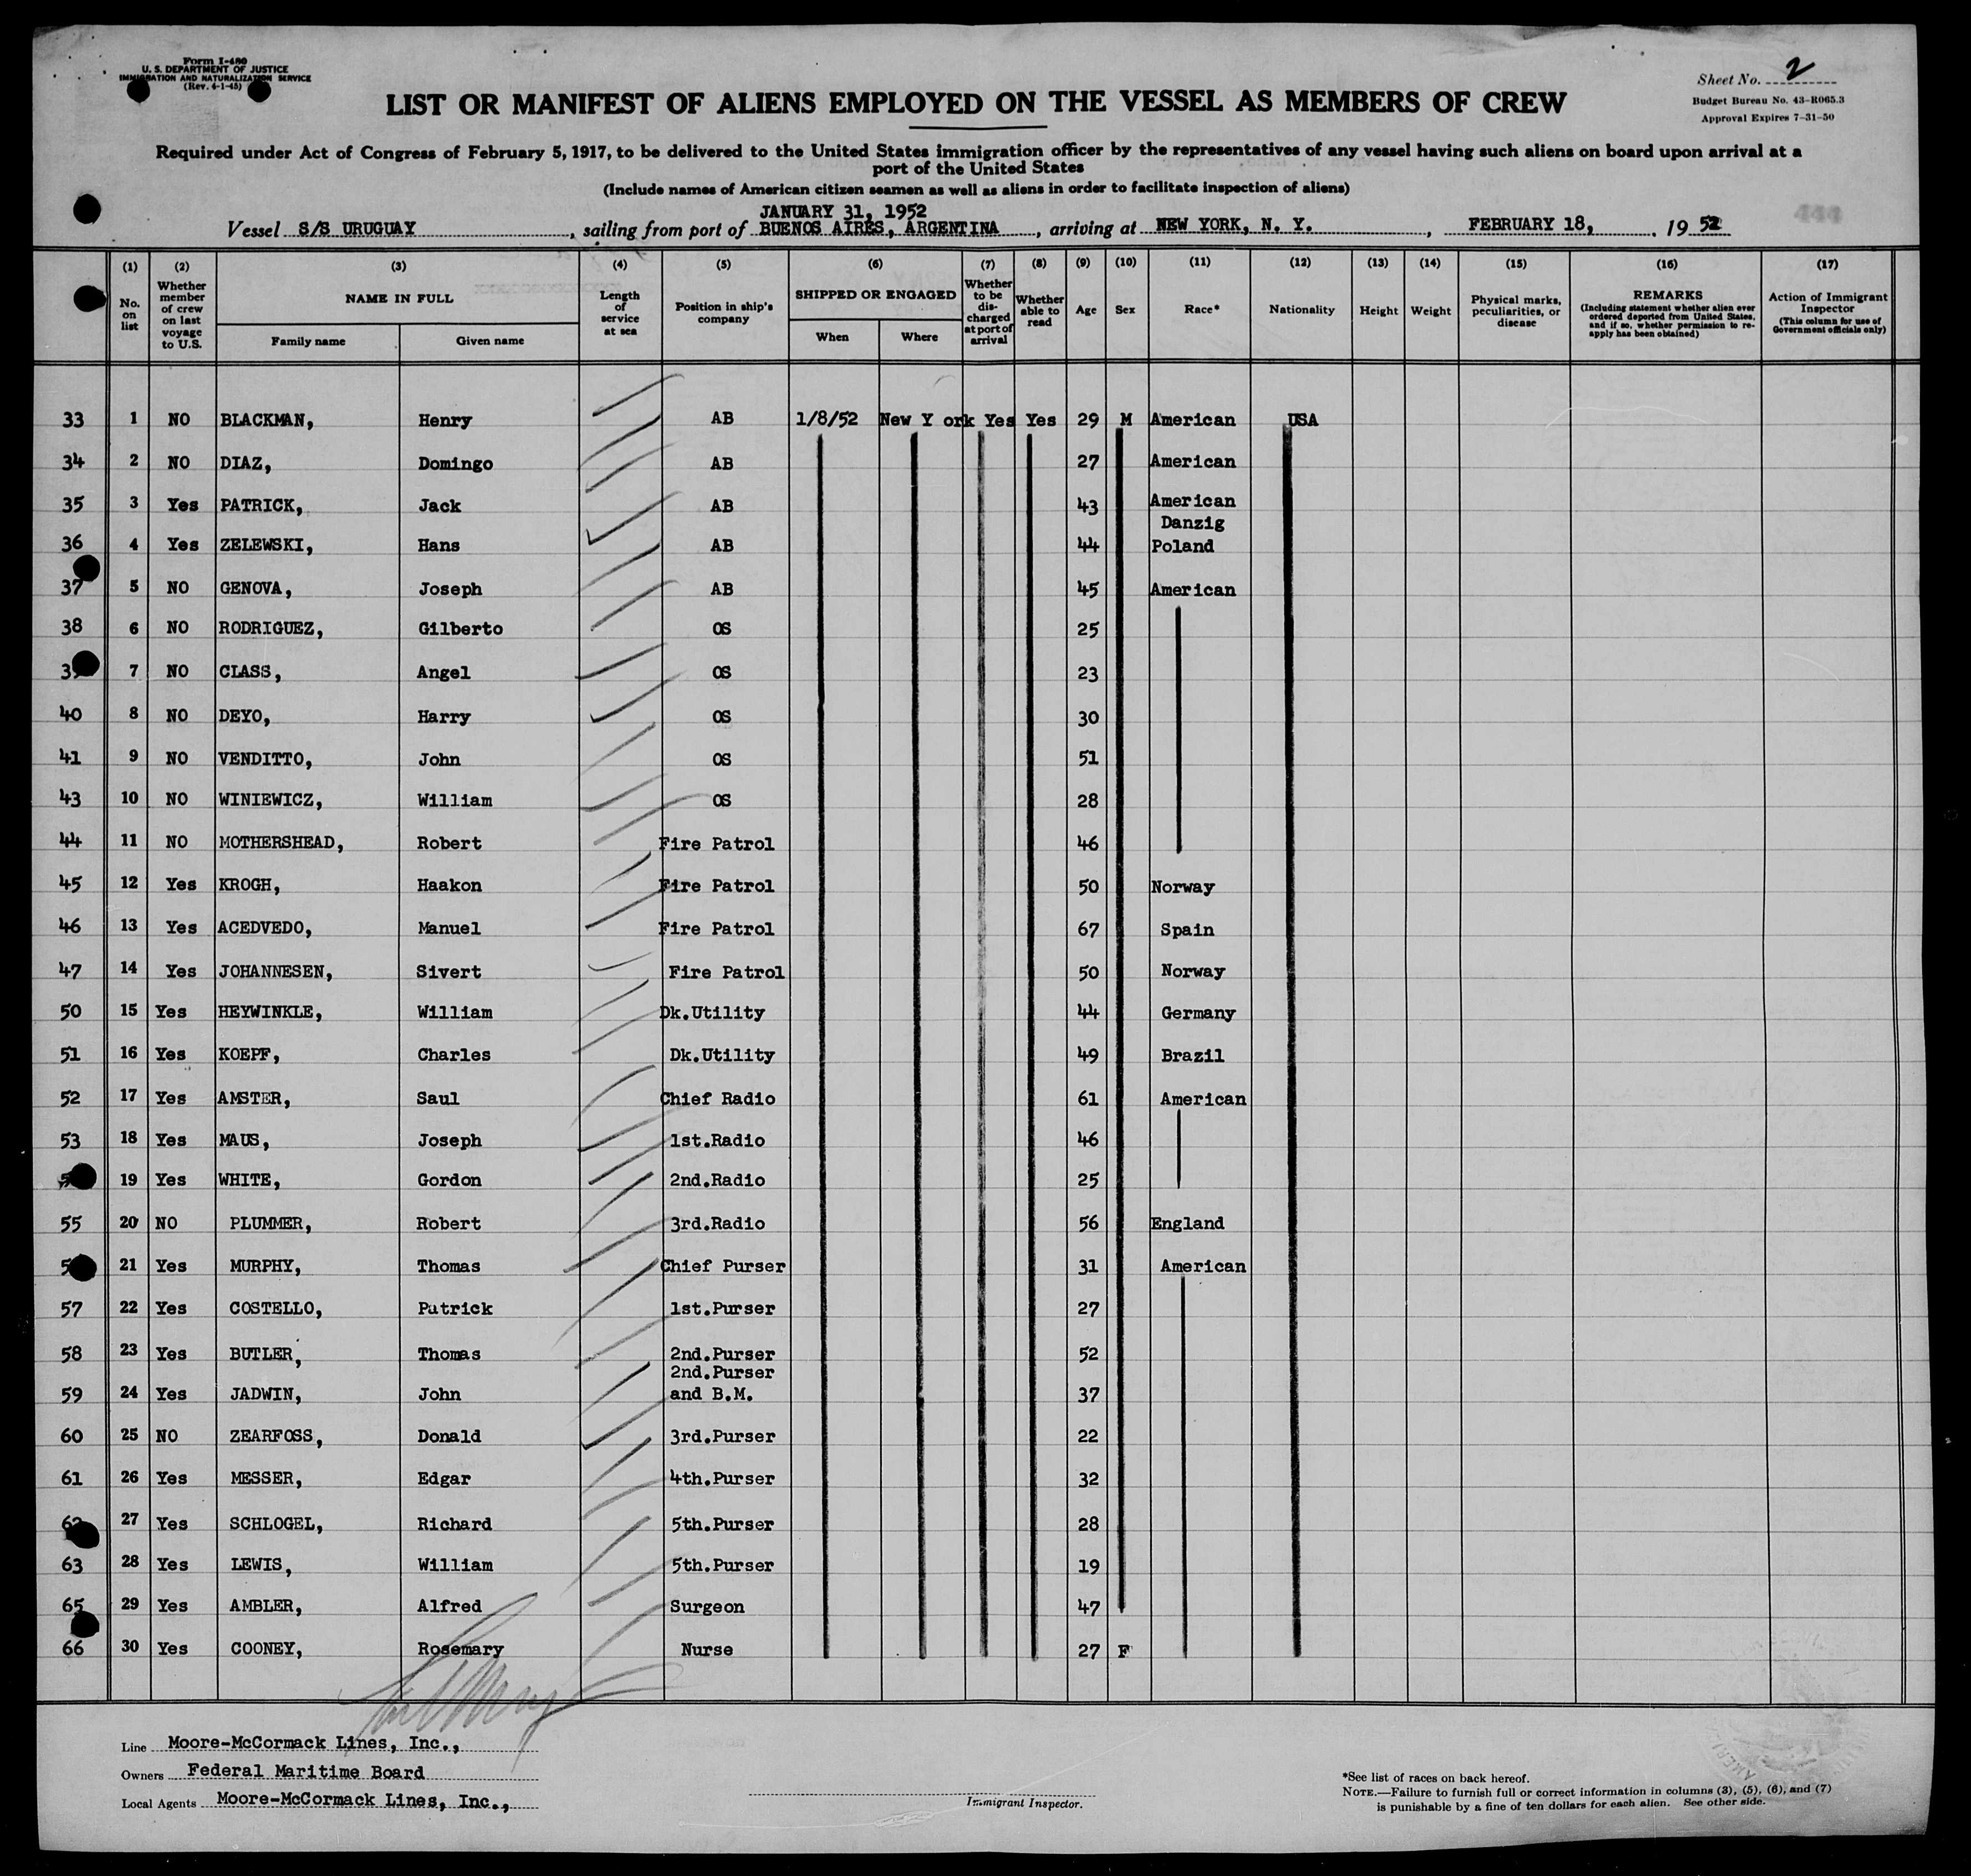 Form I-480
U. S. DEPARTMENT OF JUSTICE
IMMIGRATION AND NATURALIZATION SERVICE
(Rev. 4-1-45)
Sheet No. 2
Budget Bureau No. 43-R065.3
Approval Expires 7-31-50
LIST OR MANIFEST OF ALIENS EMPLOYED ON THE VESSEL AS MEMBERS OF CREW
Required under Act of Congress of February 5, 1917, to be delivered to the United States immigration officer by the representatives of any vessel having such aliens on board upon arrival at a
port of the United States
(Include names of American citizen seamen as well as aliens in order to facilitate inspection of aliens)
JANUARY 31, 1952
Vessel S/S URUGUAY, sailing from port of BUENOS AIRES, ARGENTINA, arriving at NEW YORK, N. Y., FEBRUARY 18, 1952
(1) No. on list
(2) Whether member of crew on last voyage to U.S.
(3) NAME IN FULL
Family name
Given name
(4) Length of service at sea
(5) Position in ship's company
(6) SHIPPED OR ENGAGED
When
Where
(7) Whether to be discharged at port of arrival
(8) Whether able to read
(9) Age
(10) Sex
(11) Race*
(12) Nationality
(13) Height
(14) Weight
(15) Physical marks, peculiarities, or disease
(16) REMARKS (Including statement whether alien ever ordered deported from United States, and if so, whether permission to re-apply has been obtained)
(17) Action of Immigrant Inspector (This column for use of Government officials only)
33 1 NO BLACKMAN, Henry AB 1/8/52 New Y ork Yes Yes 29 M American USA
34 2 NO DIAZ, Domingo AB 27 American
35 3 Yes PATRICK, Jack AB 43 American
Danzig
36 4 Yes ZELEWSKI, Hans AB 44 Poland
37 5 NO GENOVA, Joseph AB 45 American
38 6 NO RODRIGUEZ, Gilberto OS 25
7 NO CLASS, Angel OS 23
40 8 NO DEYO, Harry OS 30
41 9 NO VENDITTO, John OS 51
43 10 NO WINIEWICZ, William OS 28
44 11 NO MOTHERSHEAD, Robert Fire Patrol 46
45 12 Yes KROGH, Haakon Fire Patrol 50 Norway
46 13 Yes ACEDVEDO, Manuel Fire Patrol 67 Spain
47 14 Yes JOHANNESEN, Sivert Fire Patrol 50 Norway
50 15 Yes HEYWINKLE, William Dk.Utility 44 Germany
51 16 Yes KOEPF, Charles Dk.Utility 49 Brazil
52 17 Yes AMSTER, Saul Chief Radio 61 American
53 18 Yes MAUS, Joseph 1st.Radio 46
19 Yes WHITE, Gordon 2nd.Radio 25
55 20 NO PLUMMER, Robert 3rd.Radio 56 England
21 Yes MURPHY, Thomas Chief Purser 31 American
57 22 Yes COSTELLO, Patrick 1st.Purser 27
58 23 Yes BUTLER, Thomas 2nd.Purser 52
2nd.Purser
59 24 Yes JADWIN, John and B.M. 37
60 25 NO ZEARFOSS, Donald 3rd.Purser 22
61 26 Yes MESSER, Edgar 4th.Purser 32
27 Yes SCHLOGEL, Richard 5th.Purser 28
63 28 Yes LEWIS, William 5th.Purser 19
65 29 Yes AMBLER, Alfred Surgeon 47
66 30 Yes COONEY, Rosemary Nurse 27 F
Line Moore-McCormack Lines, Inc.,
Owners Federal Maritime Board
Local Agents Moore-McCormack Lines, Inc.,
Immigrant Inspector.
*See list of races on back hereof.
NOTE.—Failure to furnish full or correct information in columns (3), (5), (6), and (7)
is punishable by a fine of ten dollars for each alien. See other side.